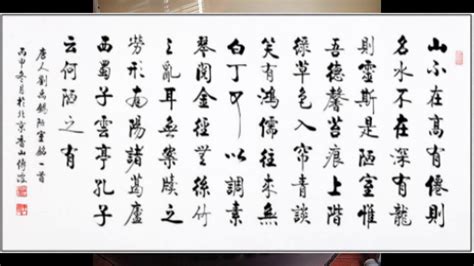 山不在高有僊則
名水不在深有龍
則靈斯是陋室惟
吾德馨苔痕上階
綠草色入帘青談
笑有鴻儒往來無
白丁可以調素
琴閱金經無絲竹
之亂耳無案牘之
勞形南陽諸葛廬
西蜀子雲亭孔子
云何陋之有
唐人劉禹錫陋室銘一首
丙申冬月於北京香山